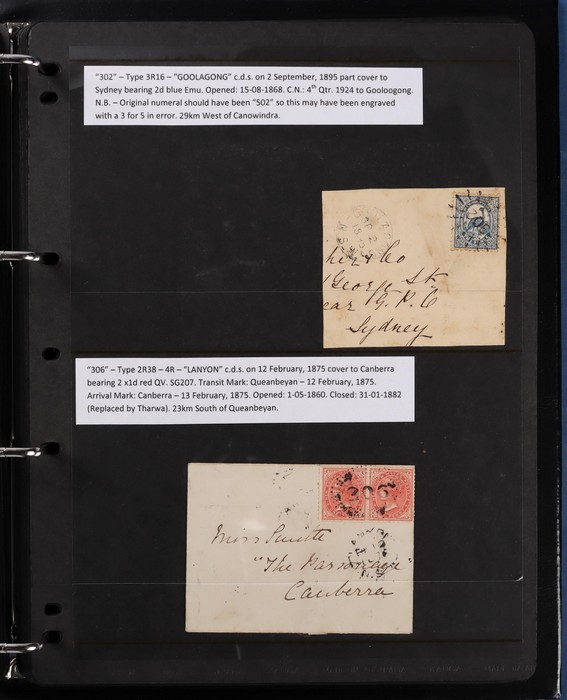 "302" – Type 3R16 – "GOOLAGONG" c.d.s. on 2 September, 1895 part cover to
Sydney bearing 2d blue Emu. Opened: 15-08-1868. C.N.: 4th Qtr. 1924 to Gooloogong.
N.B. – Original numeral should have been "502" so this may have been engraved
with a 3 for 5 in error. 29km West of Canowindra.
& Co
George St
G. P. O
Sydney
"306" – Type 2R38 – 4R – "LANYON" c.d.s. on 12 February, 1875 cover to Canberra
bearing 2 x1d red QV. SG207. Transit Mark: Queanbeyan – 12 February, 1875.
Arrival Mark: Canberra – 13 February, 1875. Opened: 1-05-1860. Closed: 31-01-1882
(Replaced by Tharwa). 23km South of Queanbeyan.
306
Miss Smith
"The Parsonage
Canberra